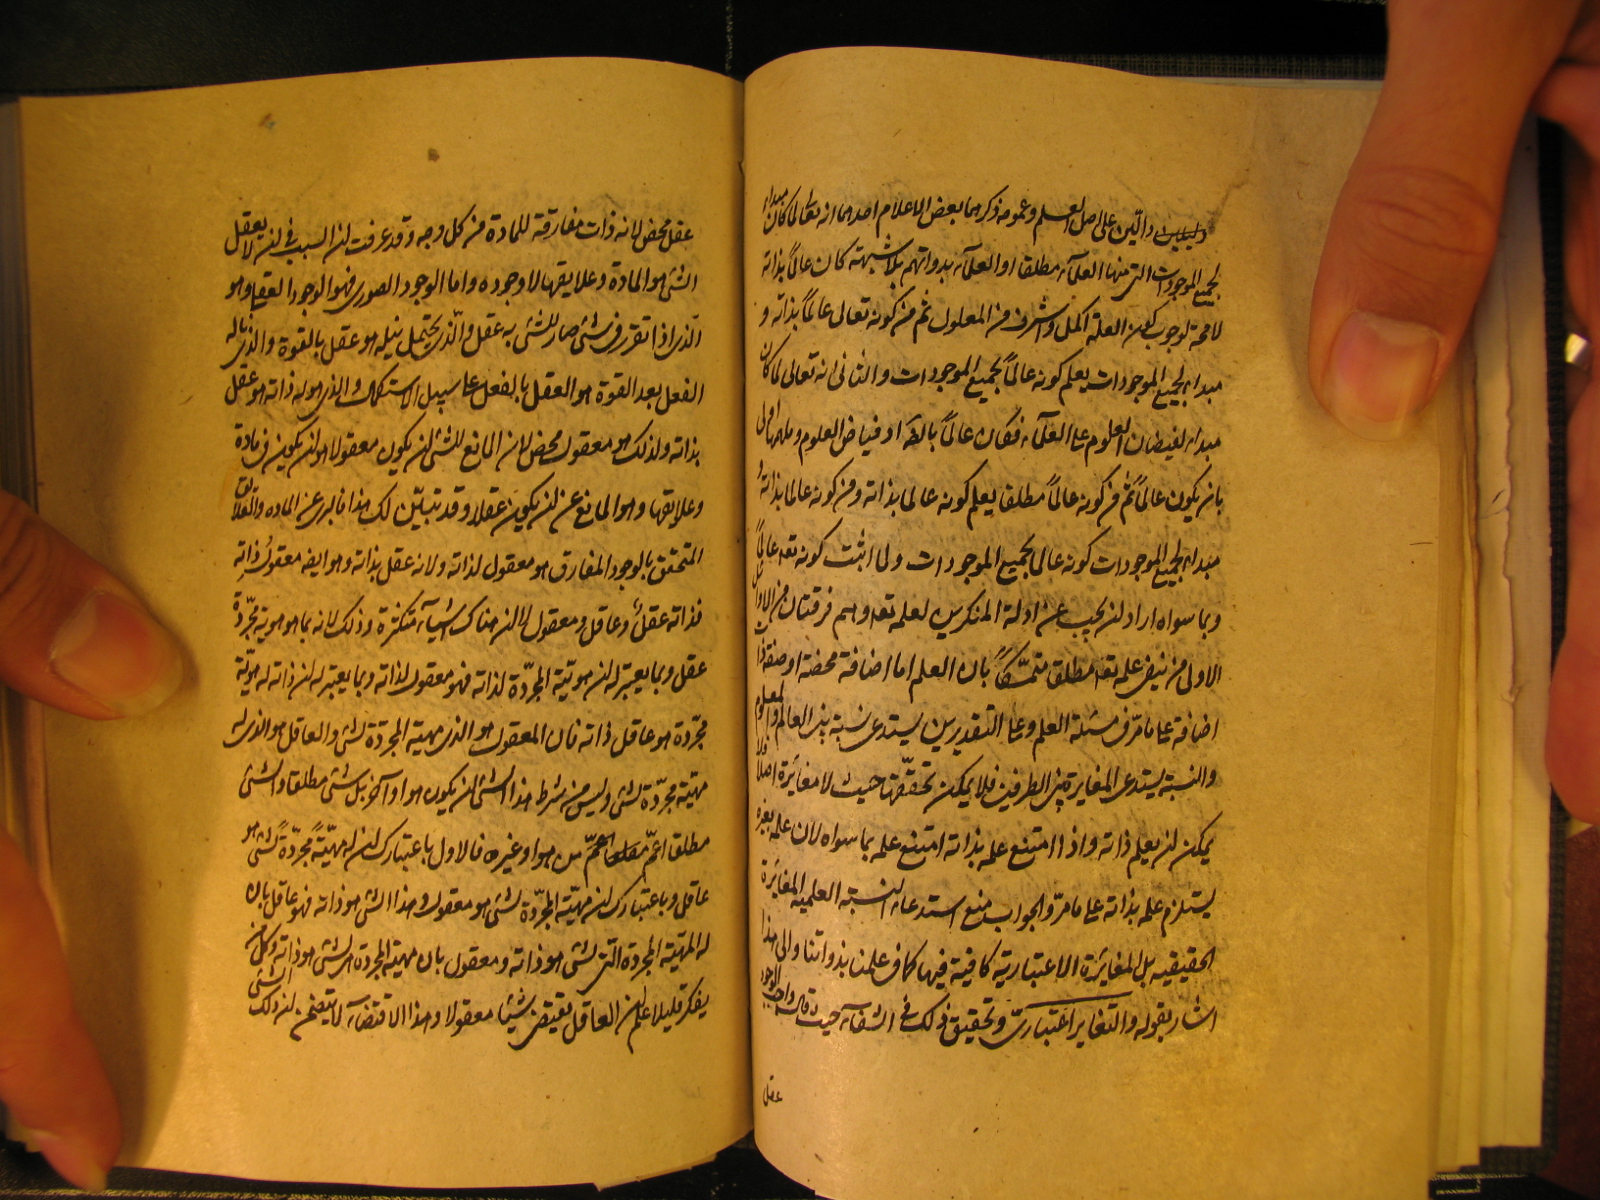 دليلين دالين على اصل العلم وعمومه ذكرهما بعض الاعلام احدهما انه تعالى لما كان مبداء
لجميع الموجودات التى منها العلماء مطلقا او العلماء بذواتهم بلا شبهة كان عالماً بذاته
لامحة لوجوب كون العلة اكمل واشرف من المعلول ثم من كونه تعالى عالماً بذاته و
مبداء لجميع الموجودات يعلم كونه عالماً بجميع الموجودات والثانى انه تعالى لما كان
مبداء لفيضان العلوم على العلماء فكان عالماً بالضرورة او فياض العلوم وملهمها اولى
بان يكون عالماً ثم من كونه عالماً مطلقا يعلم كونه عالما بذاته ومن كونه عالما بذاته و
مبداء لجميع الموجودات كونه عالما بجميع الموجودات ولما اثبت كونه تعه عالماً
وبما سواه اراد لن يجيب عن ادلة المنكرين لعلمه تعه وهم فرقتان من الاوائل
الاولى من ينفى علمه تعه مطلقا متمسكاً بان العلم اما اضافة محضة او صفة ذات
اضافة على ما مر فى مسئلة العلم وعلى التقديرين يستدعى نسبة بين العالم والمعلوم
والنسبة يستدعى المغايرة بين الطرفين فلا يمكن تحققها حيث لا مغايرة اصلا فلا
يمكن لن يعلم ذاته واذا امتنع علمه بذاته امتنع علمه بما سواه لان علمه بغيره
يستلزم علمه بذاته على ما مر والجواب منع استدعاء النسبة العلمية المغايرة
الحقيقيه بل المغايرة الاعتبارية كافية فيها كما فى علمنا بذواتنا والى هذا
اشار بقوله والتغاير اعتبارى وتحقيق ذلك فى الشفاء حيث قال واجب الوجود
عقل
عقل محض لانه ذات مفارقة للمادة من كل وجه وقد عرفت لن السبب فى لن لا يعقل
الشئ هو المادة وعلايقها لا وجوده واما الوجود الصورى فهو الوجود العقلى وهو
الذى اذا تقرر فى شئ صار للشئ به عقل والذى يحتمل نيله هو عقل بالقوة والذى ناله
الفعل بعد القوة هو العقل بالفعل على سبيل الاستكمال والذى هو له ذاته هو عقل
بذاته ولذلك هو معقول محض لان المانع للشئ لن يكون معقولا هو لن يكون فى مادة
وعلايقها وهو المانع عن لن يكون عقلا وقد تبين لك هذا فالبرى عن الماده والعلائق
المتحقق بالوجود المفارق هو معقول لذاته ولانه عقل بذاته وهو ايضه معقول ذاته
فذاته عقل وعاقل ومعقول لا لن هناك اشياء متكثرة وذلك لانه بما هو هوية مجردة
عقل وبما يعتبر له لن هويته المجردة لذاته فهو معقول لذاته وبما يعتبر له لن ذاته له هوية
مجردة هو عاقل ذاته فان المعقول هو الذى مهيته المجردة لشئ والعاقل هو الذى له
مهية مجردة لشئ وليس من شرط هذا الشئ لن يكون هو او آخر بل شئ مطلقا والشئ
مطلقا اعم من هو او غيره فالاول باعتبارك لن له مهية مجردة لشئ هو
عاقل وباعتبارك لن مهيته المجردة لشئ هو معقول وهذا الشئ هو ذاته فهو عاقل بان
له المهية المجردة التى لشئ هو ذاته ومعقول بان مهيته المجردة هى لشئ هو ذاته وكل من
يفكر قليلا علم لن العاقل يقتضى شيئا معقولا وهذا الاقتضاء لا يتضمن لن ذلك الشئ